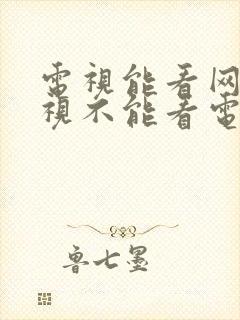 電視能看网
視不能看電
魯七墨